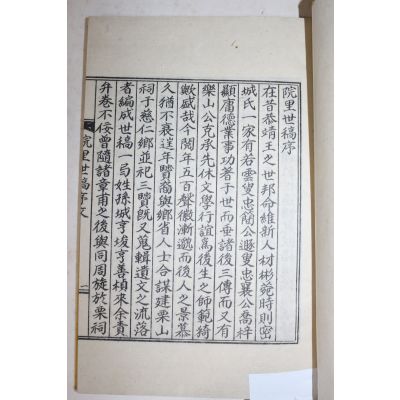 院里世稿序
在昔恭靖王之世邦命維新人材彬蔚時則密
城氏一家有若雲叟忠簡公遯叟忠襄公喬梓
顯庸德業事功著于世而垂諸後三傳而又有
樂山公克承先休文學行誼爲後生之師範猗
歟盛哉今閱年五百聲徽漸邈而後人之景慕
久猶不衰年賢裔與鄉省人士合謀建栗山
祠于慈仁鄉並祀三賢旣又蒐輯遺文之流落
者編成世稿一局姓孫城亨埈亨善楨來余責
弁卷不佞曾隨諸章甫之後與同周旋於栗祠
院里世稿序文